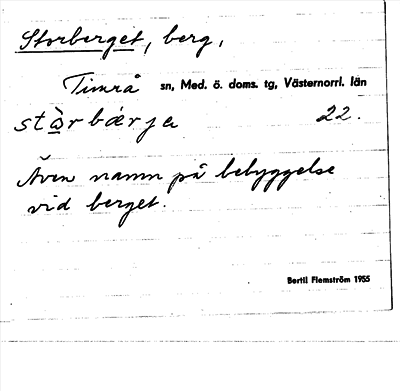 Storberget, berg,
Timrå sn, Med. ö. doms. tg, Västernorrl. län
stòrbǽrja 22.
Även namn på bebyggelse
vid berget.
Bertil Flemström 1955